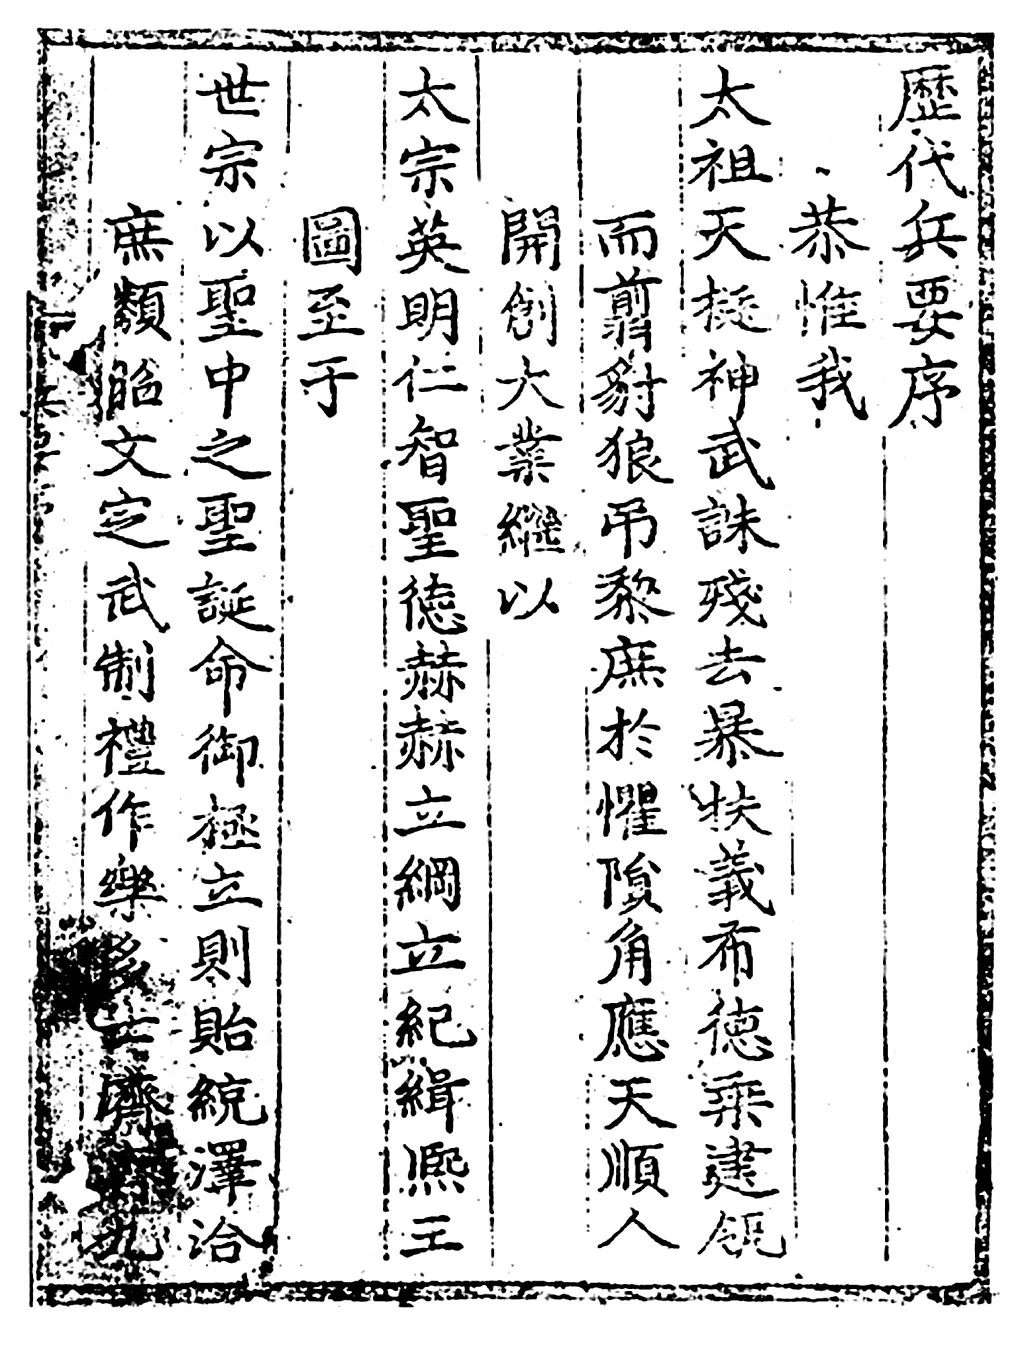 歷代兵要序
恭惟我
太祖天挺神武誅殘去暴扶義布德乘建瓴
而翦豺狼吊黎庶於懼隤角應天順人
開創大業繼以
太宗英明仁智聖德赫赫立綱立紀緝熙王
圖至于
世宗以聖中之聖誕命御極立則貽統澤洽
庶類昭文定武制禮作樂多士濟濟九